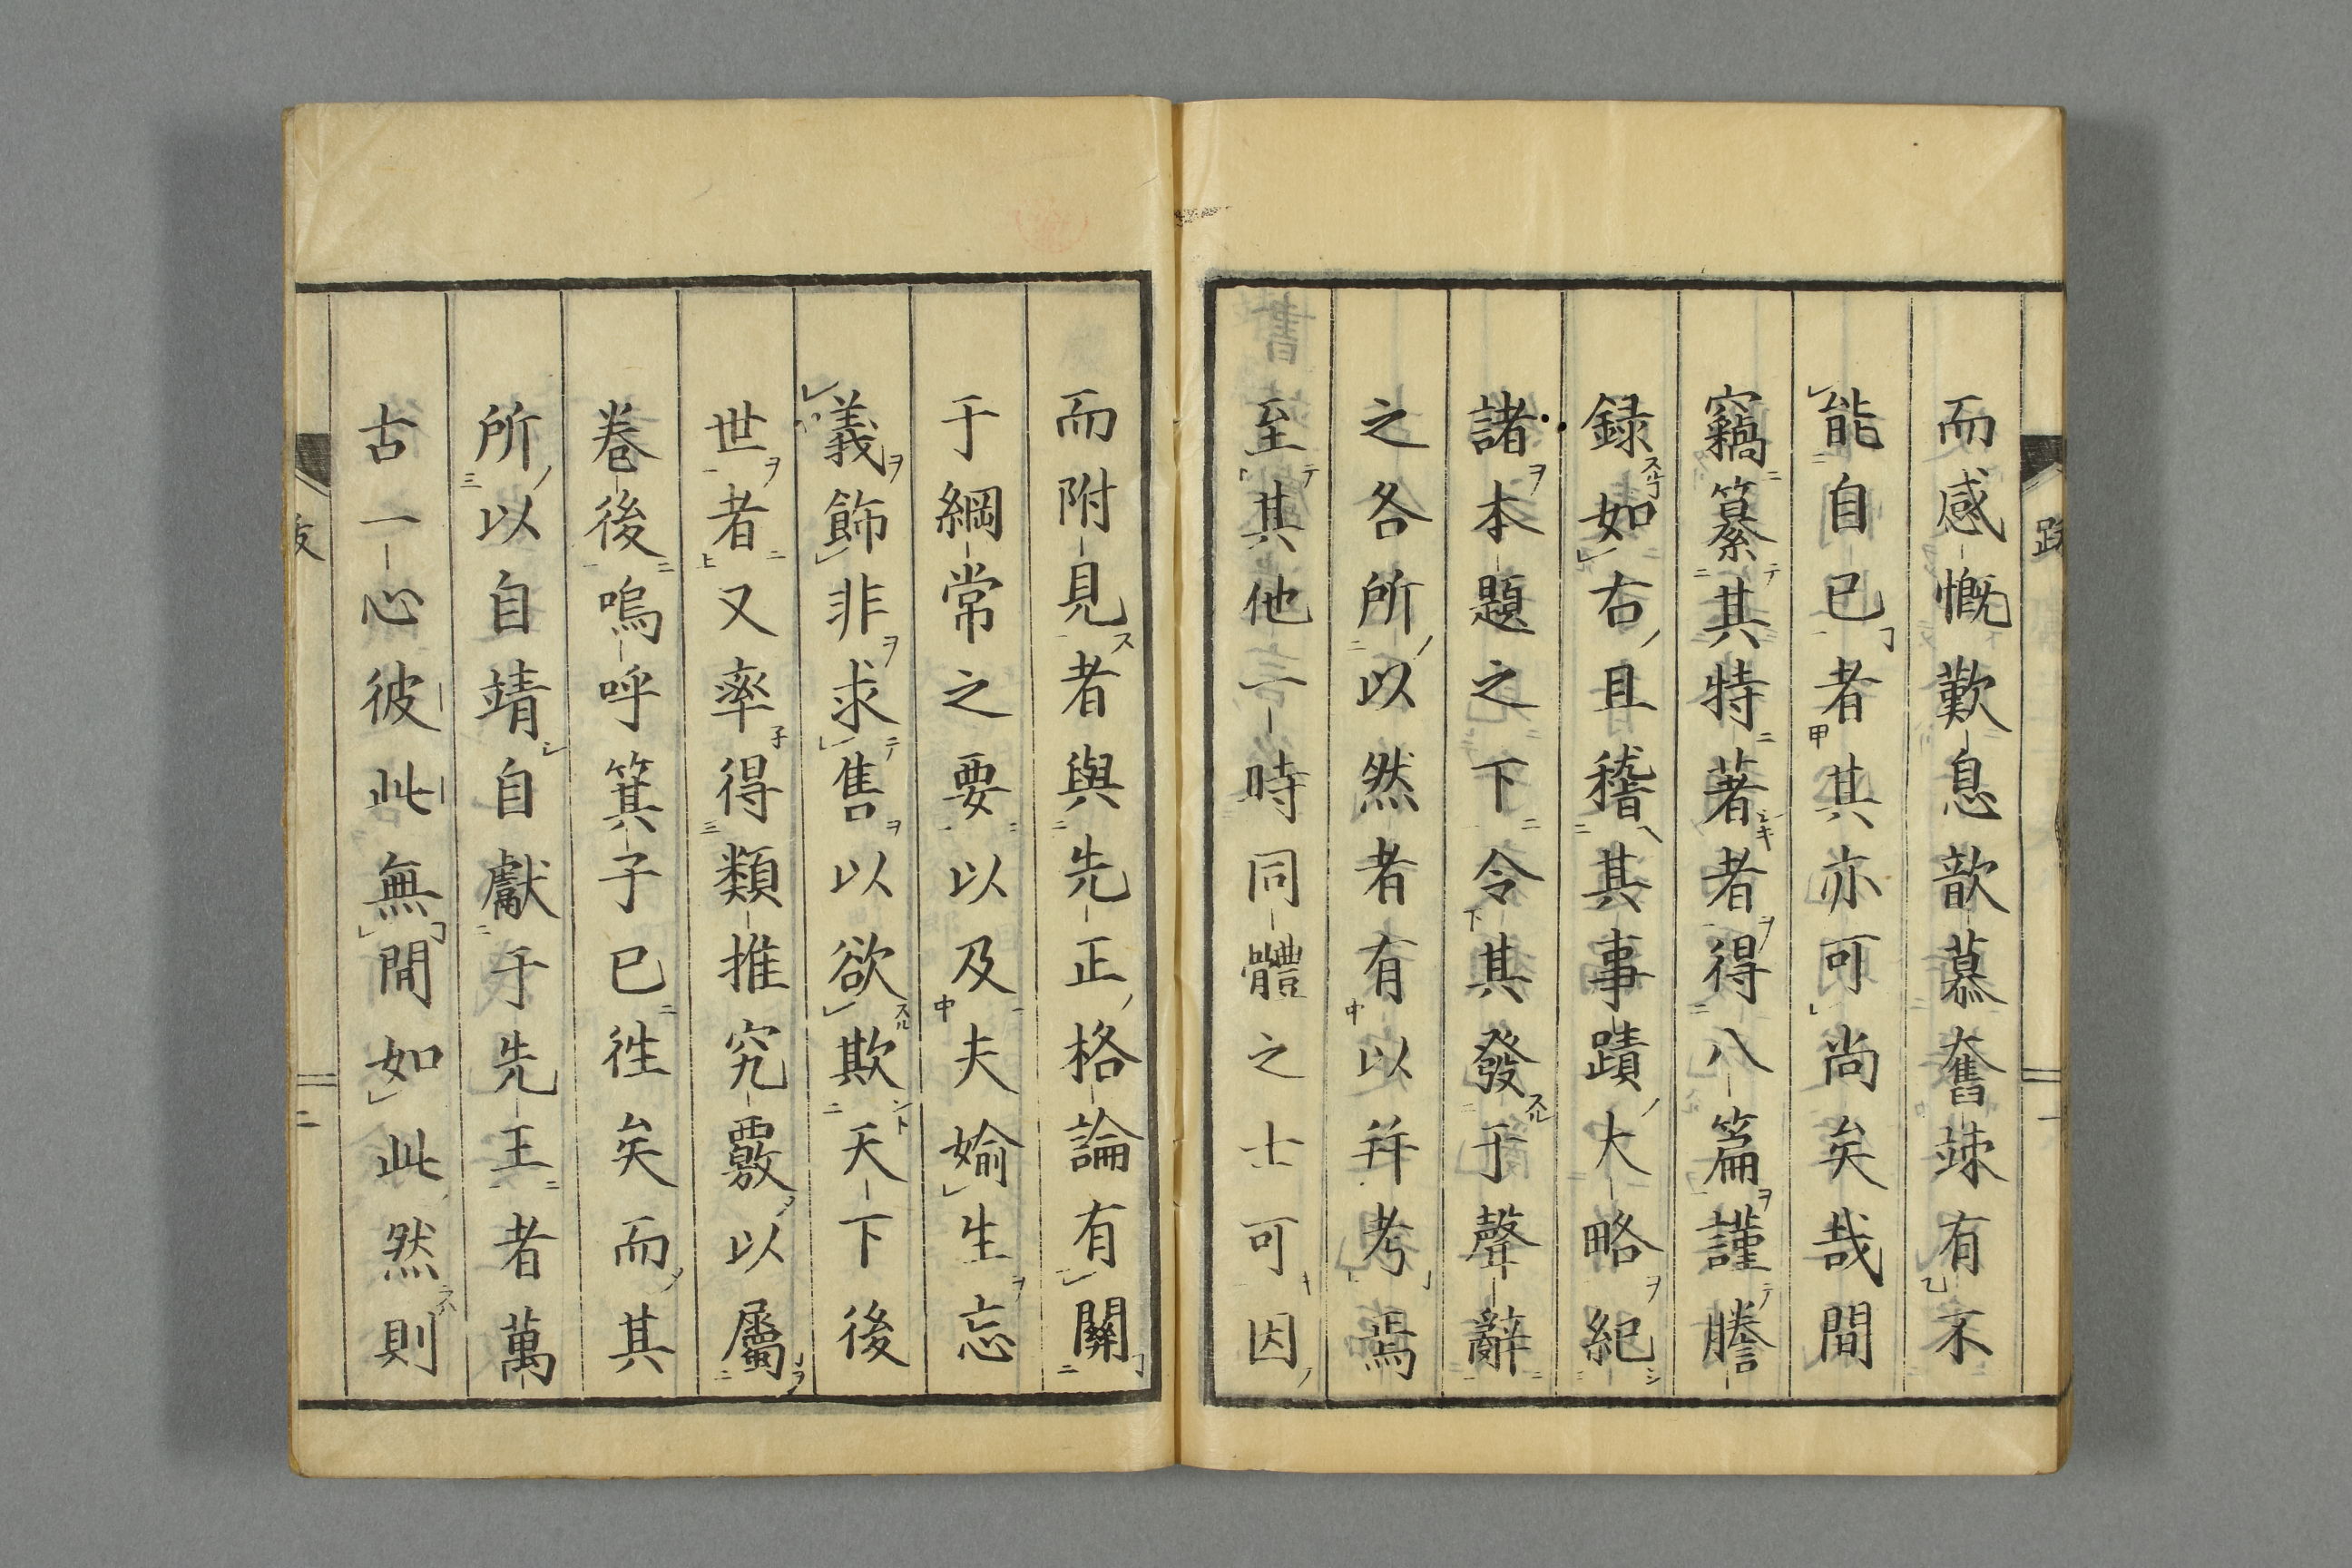 而感慨歎息歆慕奮竦有不
能自已者其亦可尚矣哉間
竊纂其特著者得八篇謹謄
録如右且稽其事蹟大略紀
諸本題之下令其發于聲辭
之各所以然者有以并考焉
至其他一時同體之士可因
而附見者與先正格論有關
于綱常之要以及夫婾生忘
義飾非求售以欲欺天下後
世者又率得類推究覈以屬
卷後嗚呼箕子已徃矣而其
所以自靖自獻于先王者萬
古一心彼此無間如此然則